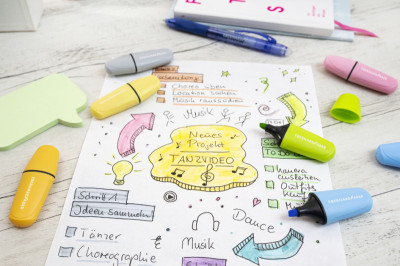 T S
Vorbereitung
Choreo üben
Location suchen
Musik raussuchen
Musik
Neues
Projekt
TANZVIDEO
Kamera
ausleihen
Outfits
Schritt 1
Ideen sammeln
Tänzer
Choreographie
Musik
Dance